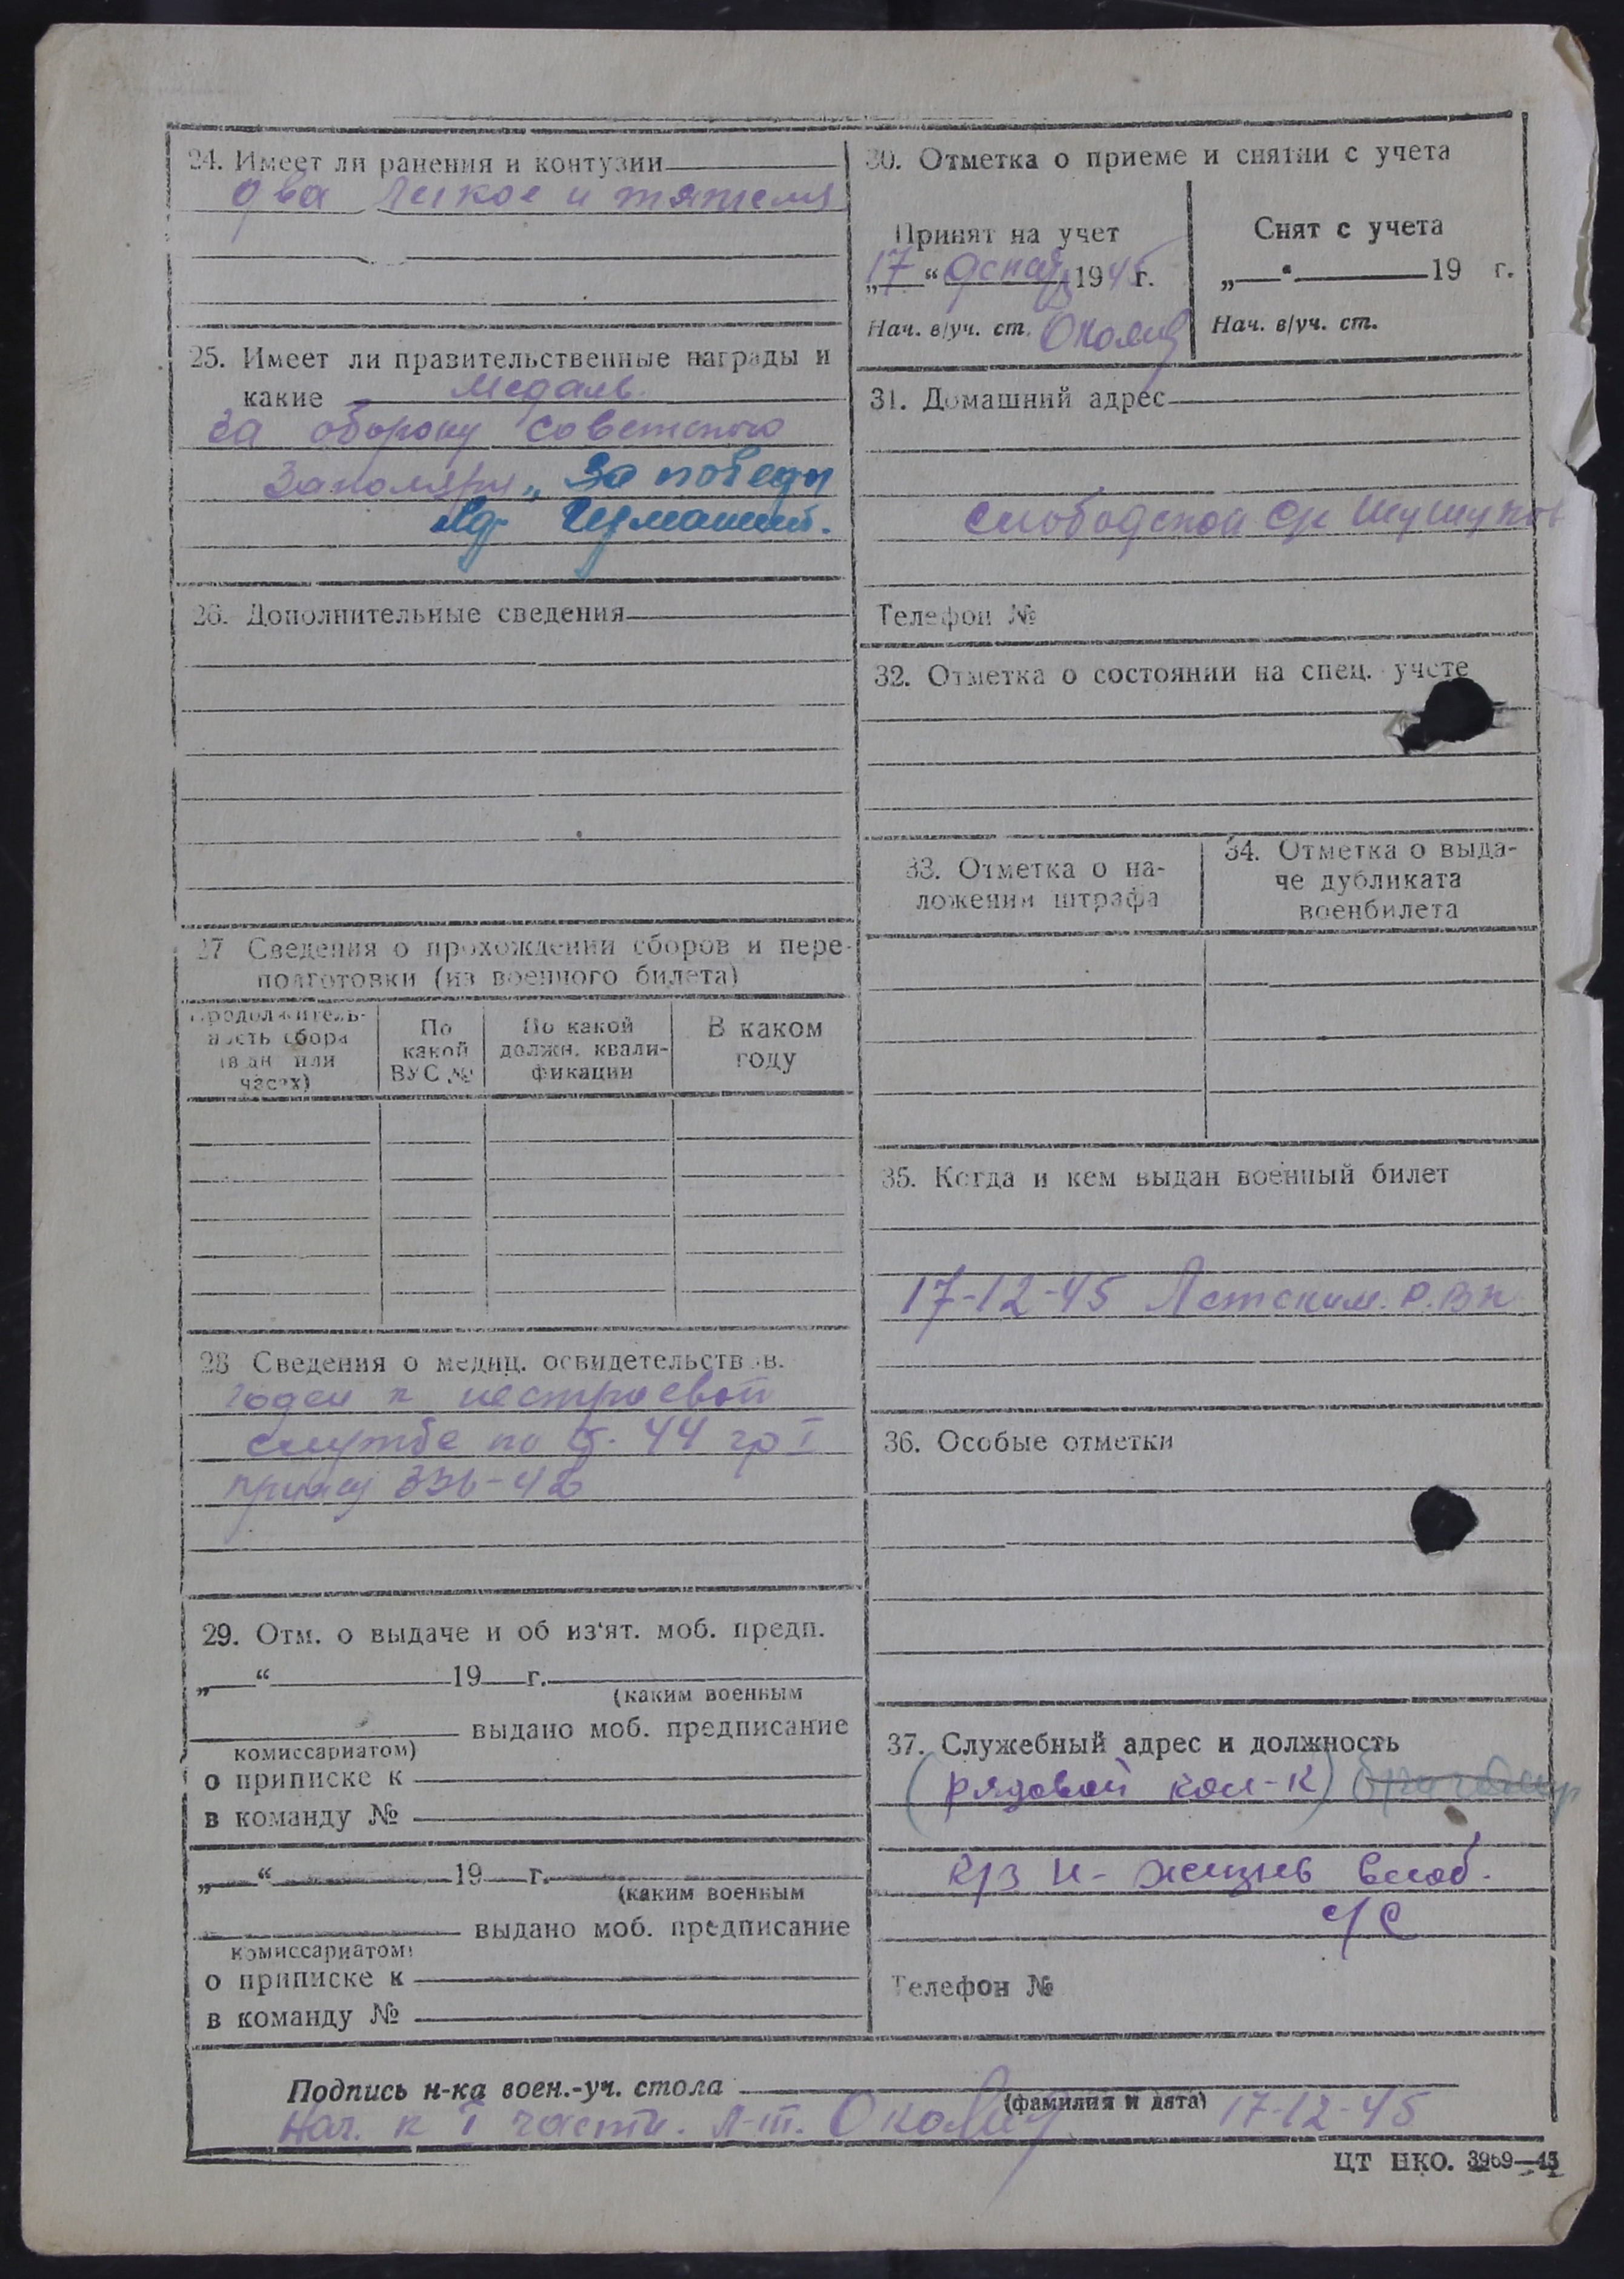 24. Имеет ли ранения и контузии
два легкое и тяжелы
25. Имеет ли правительственные награды и
какие Медаль
За оборону Советского
Заполяря „За победы
над Германией.
26. Дополнительные сведения
27 Сведения о прохождении сборов и пере-
подготовки (из военного билета)
Продолжитель-
ность сбора
(в дн или
часах)
По
какой
ВУС №
По какой
должн. квали-
фикации
В каком
году
28 Сведения о медиц. освидетельствов.
годен к нестроевой
службе по ст. 44 гр I
приказ 336-42
29. Отм. о выдаче и об из'ят. моб. предп.
„ “ 19 г.
(каким военным
выдано моб. предписание
комиссариатом)
о приписке к
в команду №
„ “ 19 г.
(каким военным
выдано моб. предписание
комиссариатом)
о приписке к
в команду №
30. Отметка о приеме и снятии с учета
Принят на учет
„17“ декаб 1945 г.
Нач. в/уч. ст.
Снят с учета
„ “ 19 г.
Нач. в/уч. ст.
31. Домашний адрес
Слободской с/с Шушупов
Телефон №
32. Отметка о состоянии на спец. учете
33. Отметка о на-
ложении штрафа
34. Отметка о выда-
че дубликата
военбилета
35. Когда и кем выдан военный билет
17-12-45 Летским Р.В.К
36. Особые отметки
37. Служебный адрес и должность
(рядовой кол-к) бригадир
к/з Н-жизнь Слоб.
с/С
Телефон №
Подпись н-ка воен.-уч. стола
(фамилия и дата)
Нач. к I части. Л-т. 17-12-45
ЦТ НКО. 3969—45